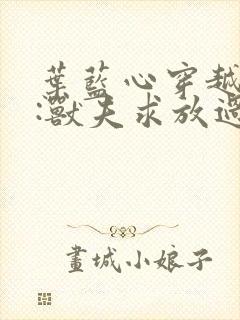 葉藍心穿越
:獸夫求放過
畫城小娘子